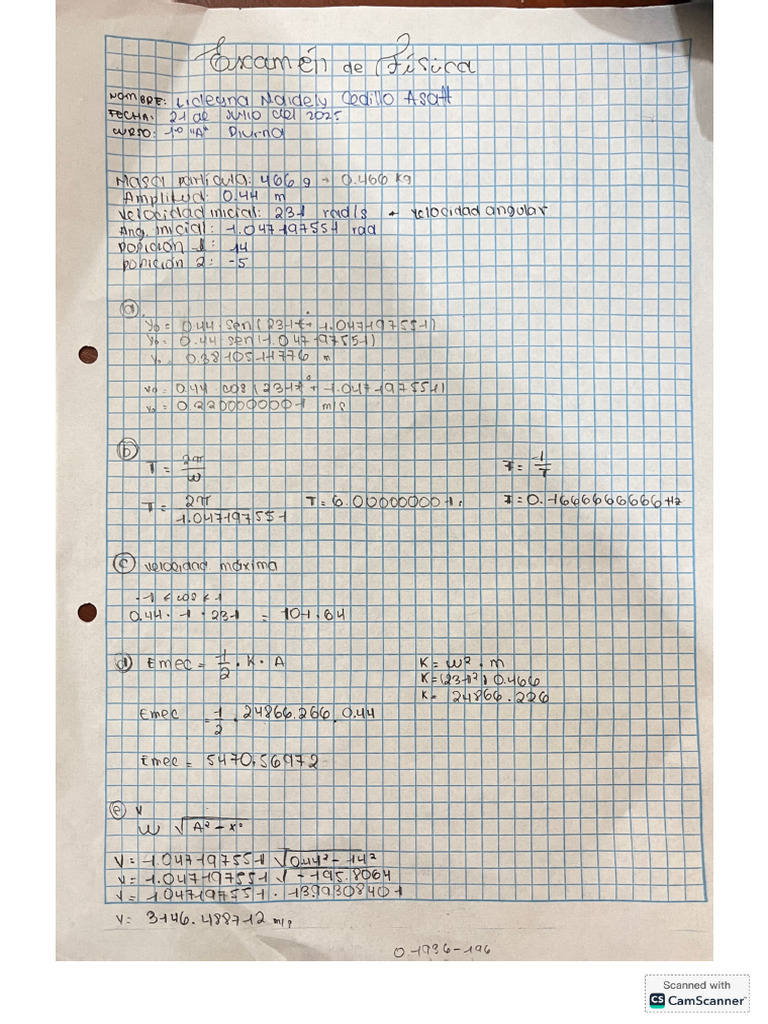 Examen de Física
NOMBRE: Lideyna Naidely Cedillo Asatt
FECHA: 21 de Julio del 2025
CURSO: 1º "A" Diurna
Masa partícula: 466 g → 0.466 kg
Amplitud: 0.44 m
velocidad inicial: 231 rad/s → velocidad angular
Ang. inicial: 1.047197551 rad
posición 1: 14
posición 2: -5
a.
y₀ = 0.44 · sen(231t + 1.047197551)
y₀ = 0.44 sen(1.047197551)
y₀ 0.3810511776 m
v₀ = 0.44 · cos(231t + 1.047197551)
v₀ = 0.2200000001 m/s
b
T = 2π/ω F = 1/T
T = 2π/1.047197551 T = 6.000000001 F = 0.1666666666 Hz
c velocidad máxima
-1 < cos < 1
0.44 · 1 · 231 = 101.64
d Emec = 1/2 · K · A K = w² · m
K = (231²) 0.466
K = 24866.226
Emec = 1/2 · 24866.266 · 0.44
Emec = 5470.56972
e v
w √A² - x²
V = 1.047197551 √0.44² - 14²
V = 1.047197551 √-195.8064
V = 1.047197551 · 13.99308401
V = 3146.488712 m/s
0.1936-196
Scanned with
CS CamScanner